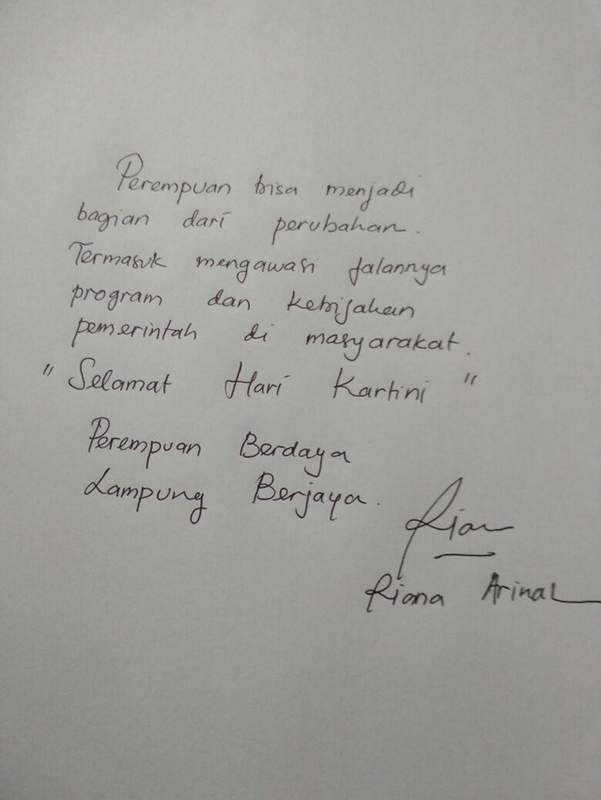 Perempuan bisa menjadi
bagian dari perubahan.
Termasuk mengawasi jalannya
program dan kebijakan
pemerintah di masyarakat.
" Selamat Hari Kartini "
Perempuan Berdaya
Lampung Berjaya.
Rian
Riana Arinal